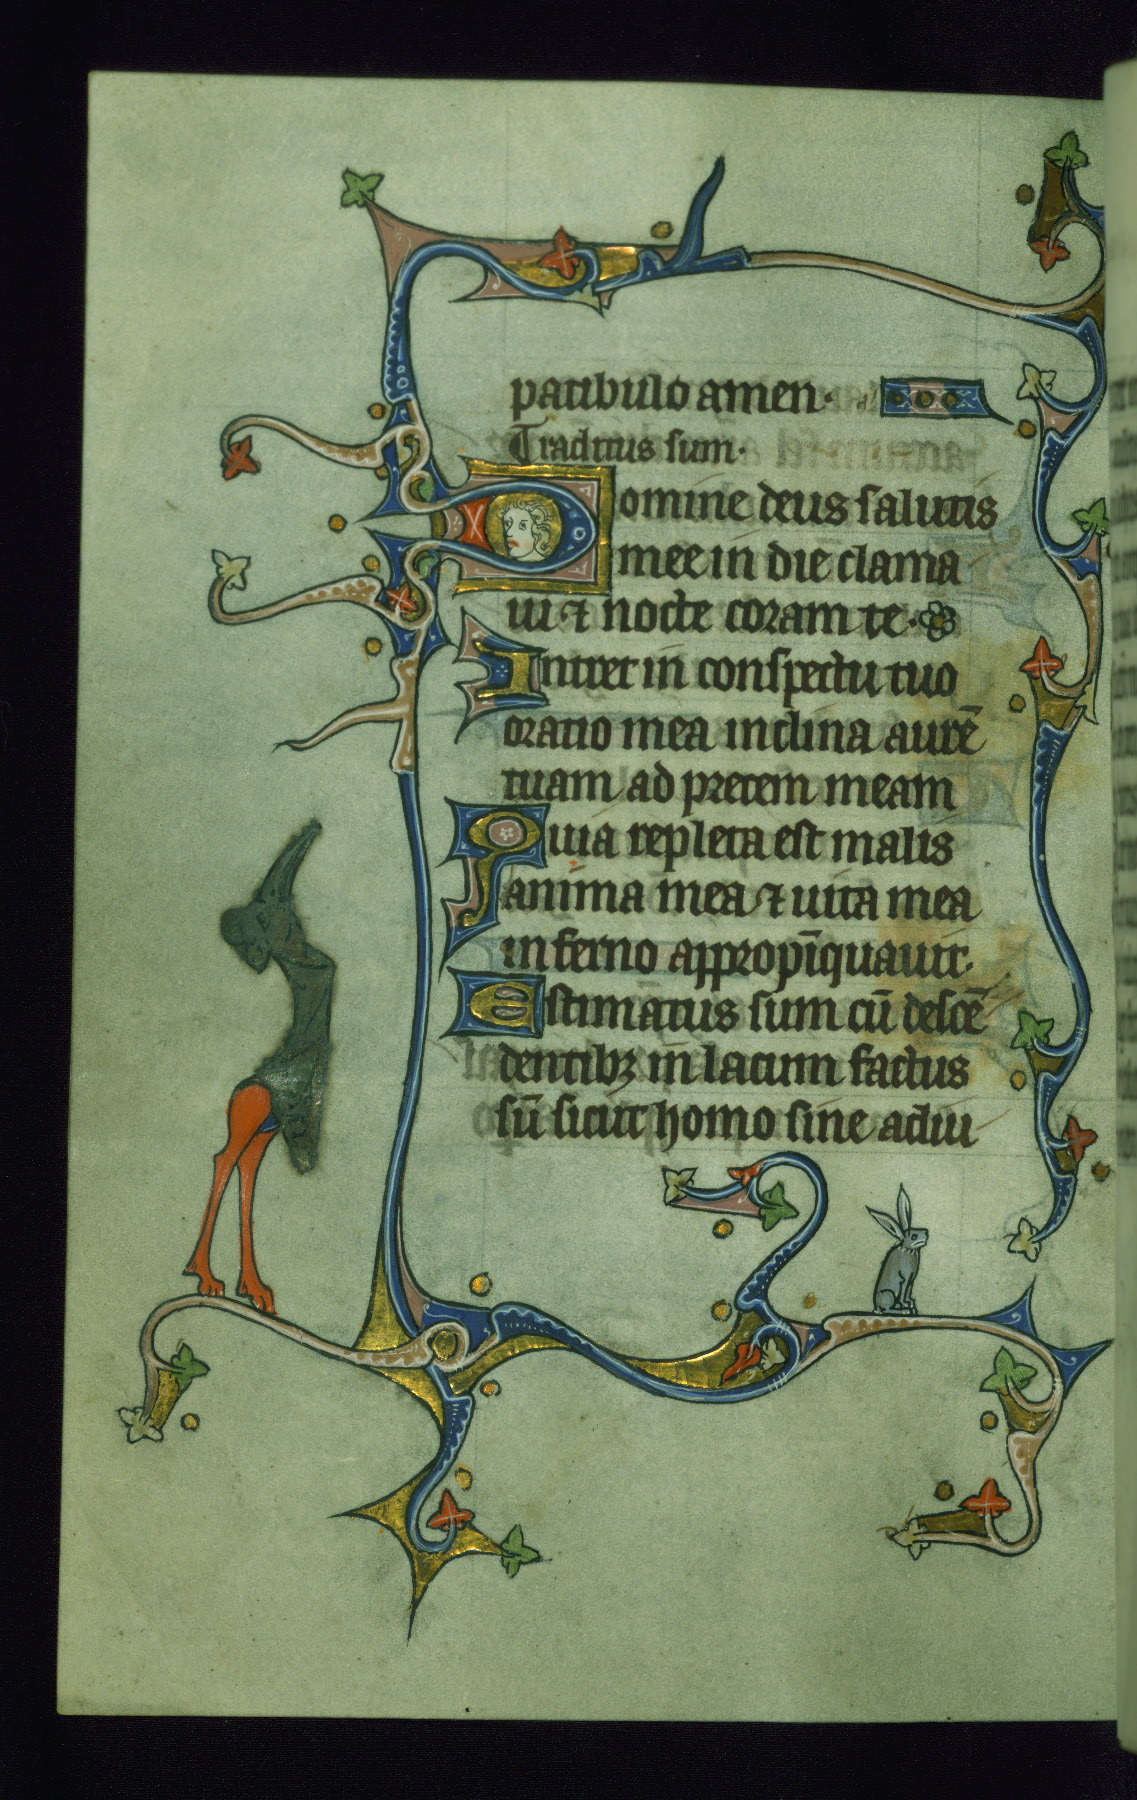 patibulo amen.
Traditus sum.
Domine deus salutis
mee in die clama
ui ⁊ nocte coram te.
Intret in conspectu tuo
oratio mea inclina aurē
tuam ad precem meam
Quia repleta est malis
anima mea ⁊ uita mea
in ferno appropīquauit.
Estimatus sum cū descē
dentibꝫ in lacum factus
sū sicut homo sine adiu